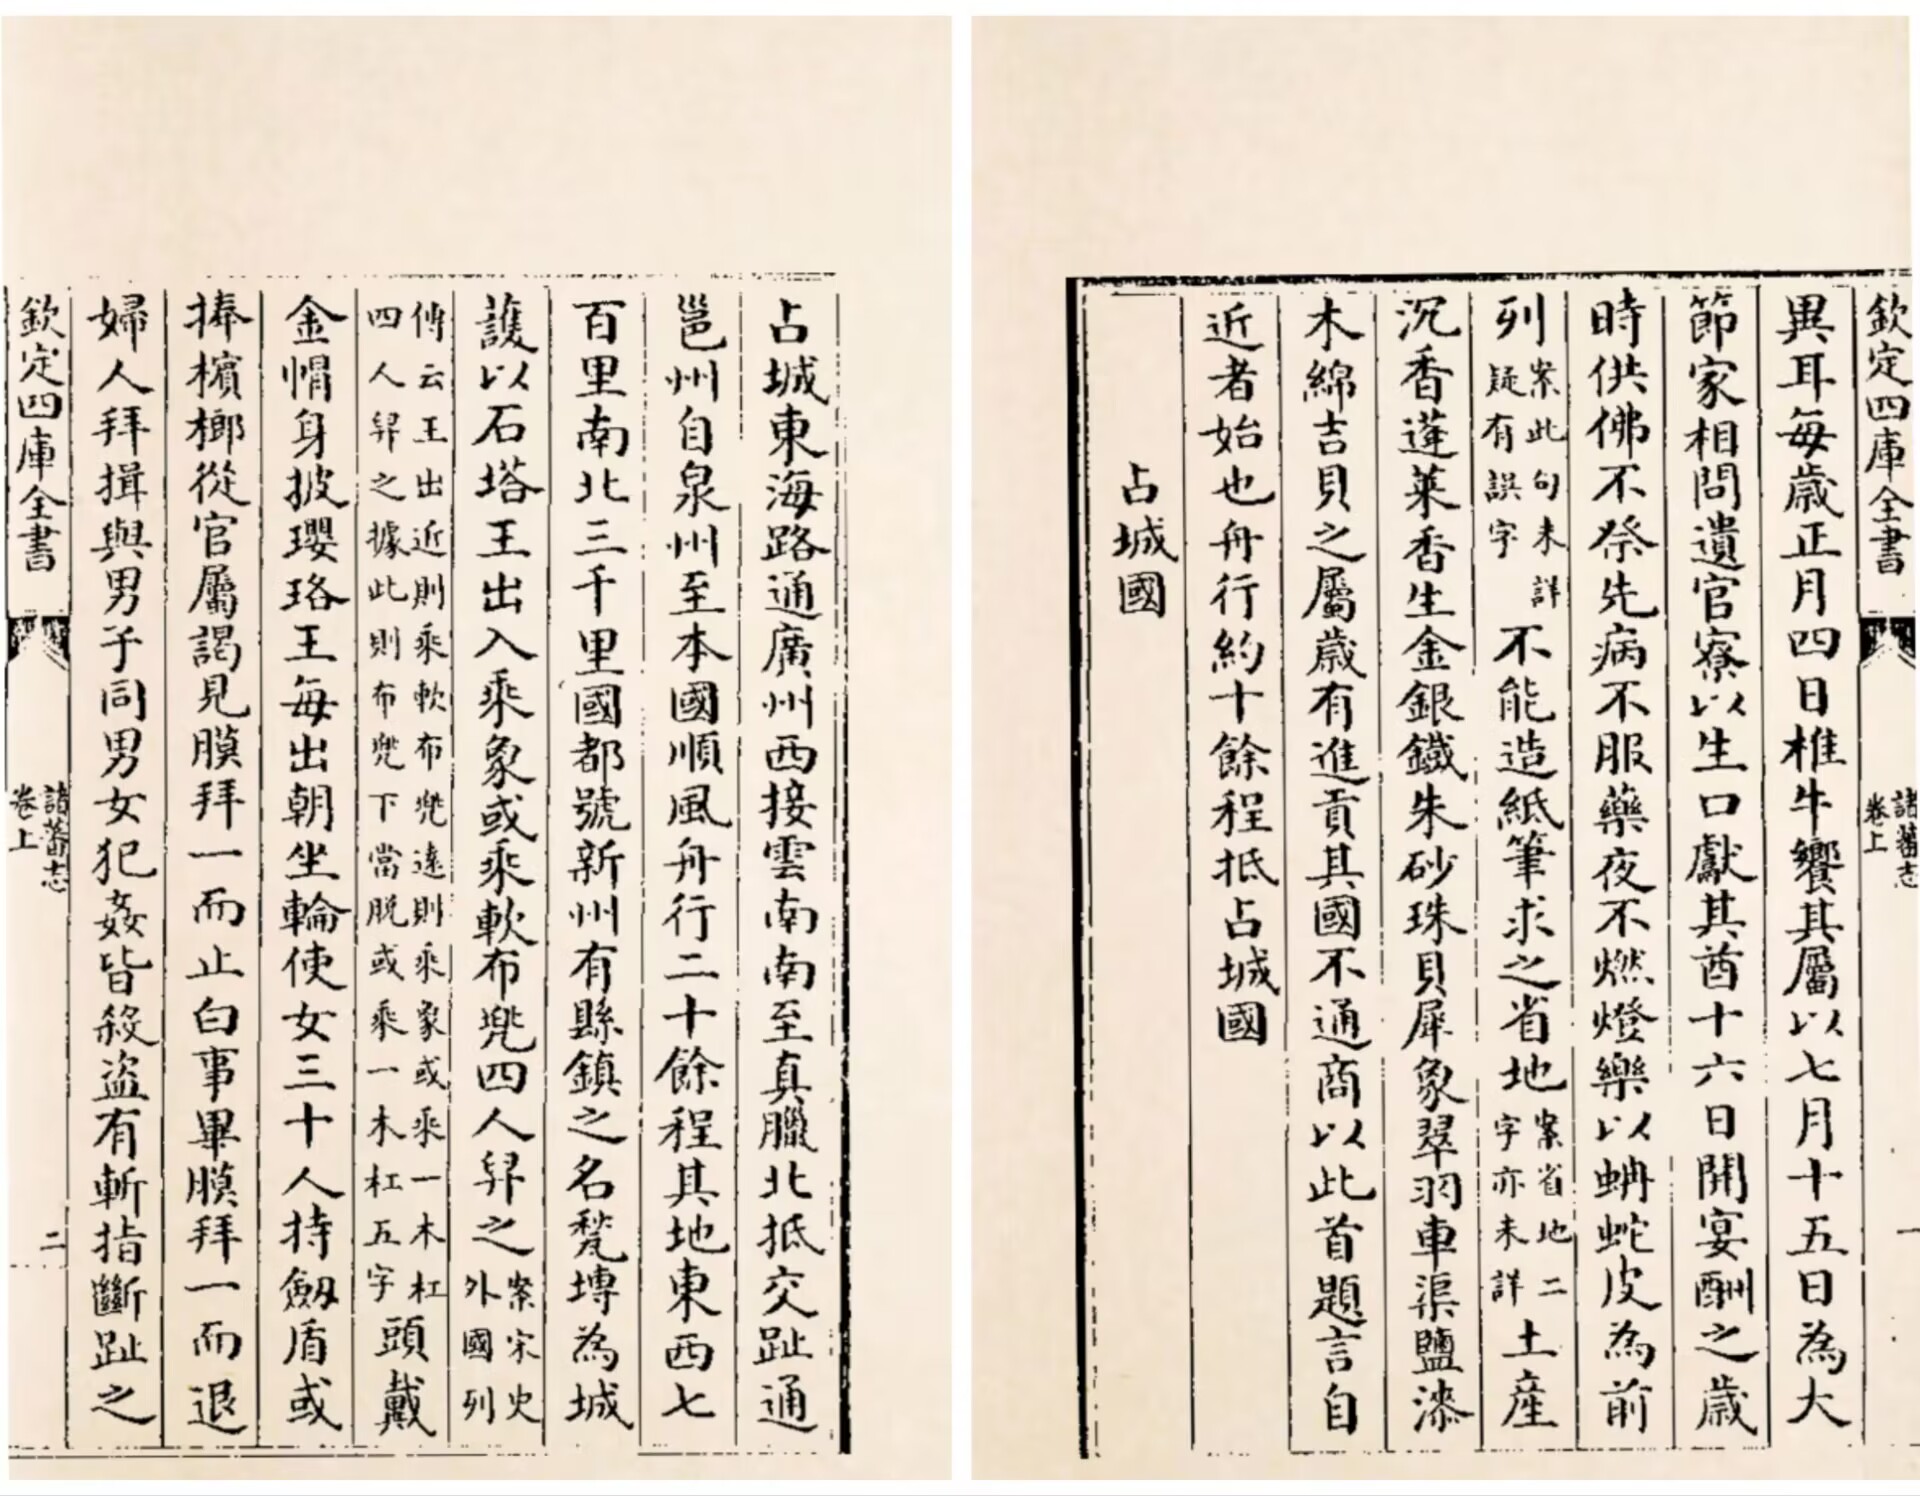 欽定四庫全書
諸蕃志
卷上
一
異耳每歲正月四日椎牛饗其屬以七月十五日為大
節家相問遺官寮以生口獻其酋十六日開宴酬之歲
時供佛不祭先病不服藥夜不燃燈樂以蚺蛇皮為前
列案此句未詳疑有誤字不能造紙筆求之省地案省地二字亦未詳土産
沉香蓬萊香生金銀鐵朱砂珠貝犀象翠羽車渠鹽漆
木綿吉貝之屬歲有進貢其國不通商以此首題言自
近者始也舟行約十餘程抵占城國
占城國
占城東海路通廣州西接雲南南至真臘北抵交趾通
邕州自泉州至本國順風舟行二十餘程其地東西七
百里南北三千里國都號新州有縣鎮之名甃塼為城
護以石塔王出入乘象或乘軟布兜四人舁之案宋史外國列
傳云王出近則乘軟布兜遠則乘象或乘一木杠四人舁之據此則布兜下當脱或乘一木杠五字頭戴
金帽身披瓔珞王每出朝坐輪使女三十人持劔盾或
捧檳榔從官屬謁見膜拜一而止白事畢膜拜一而退
婦人拜揖與男子同男女犯姦皆殺盜有斬指斷趾之
欽定四庫全書
諸蕃志
卷上
二